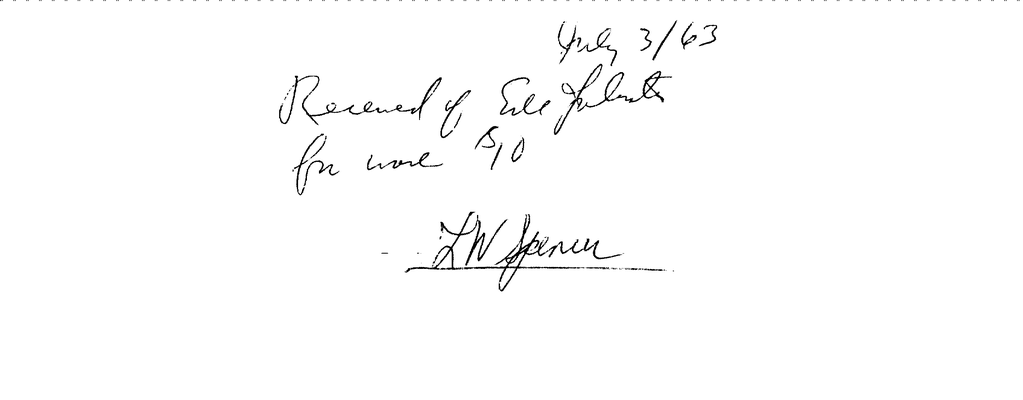 July 3/63
Received of Erle Johnston
for work $10
LW Spencer